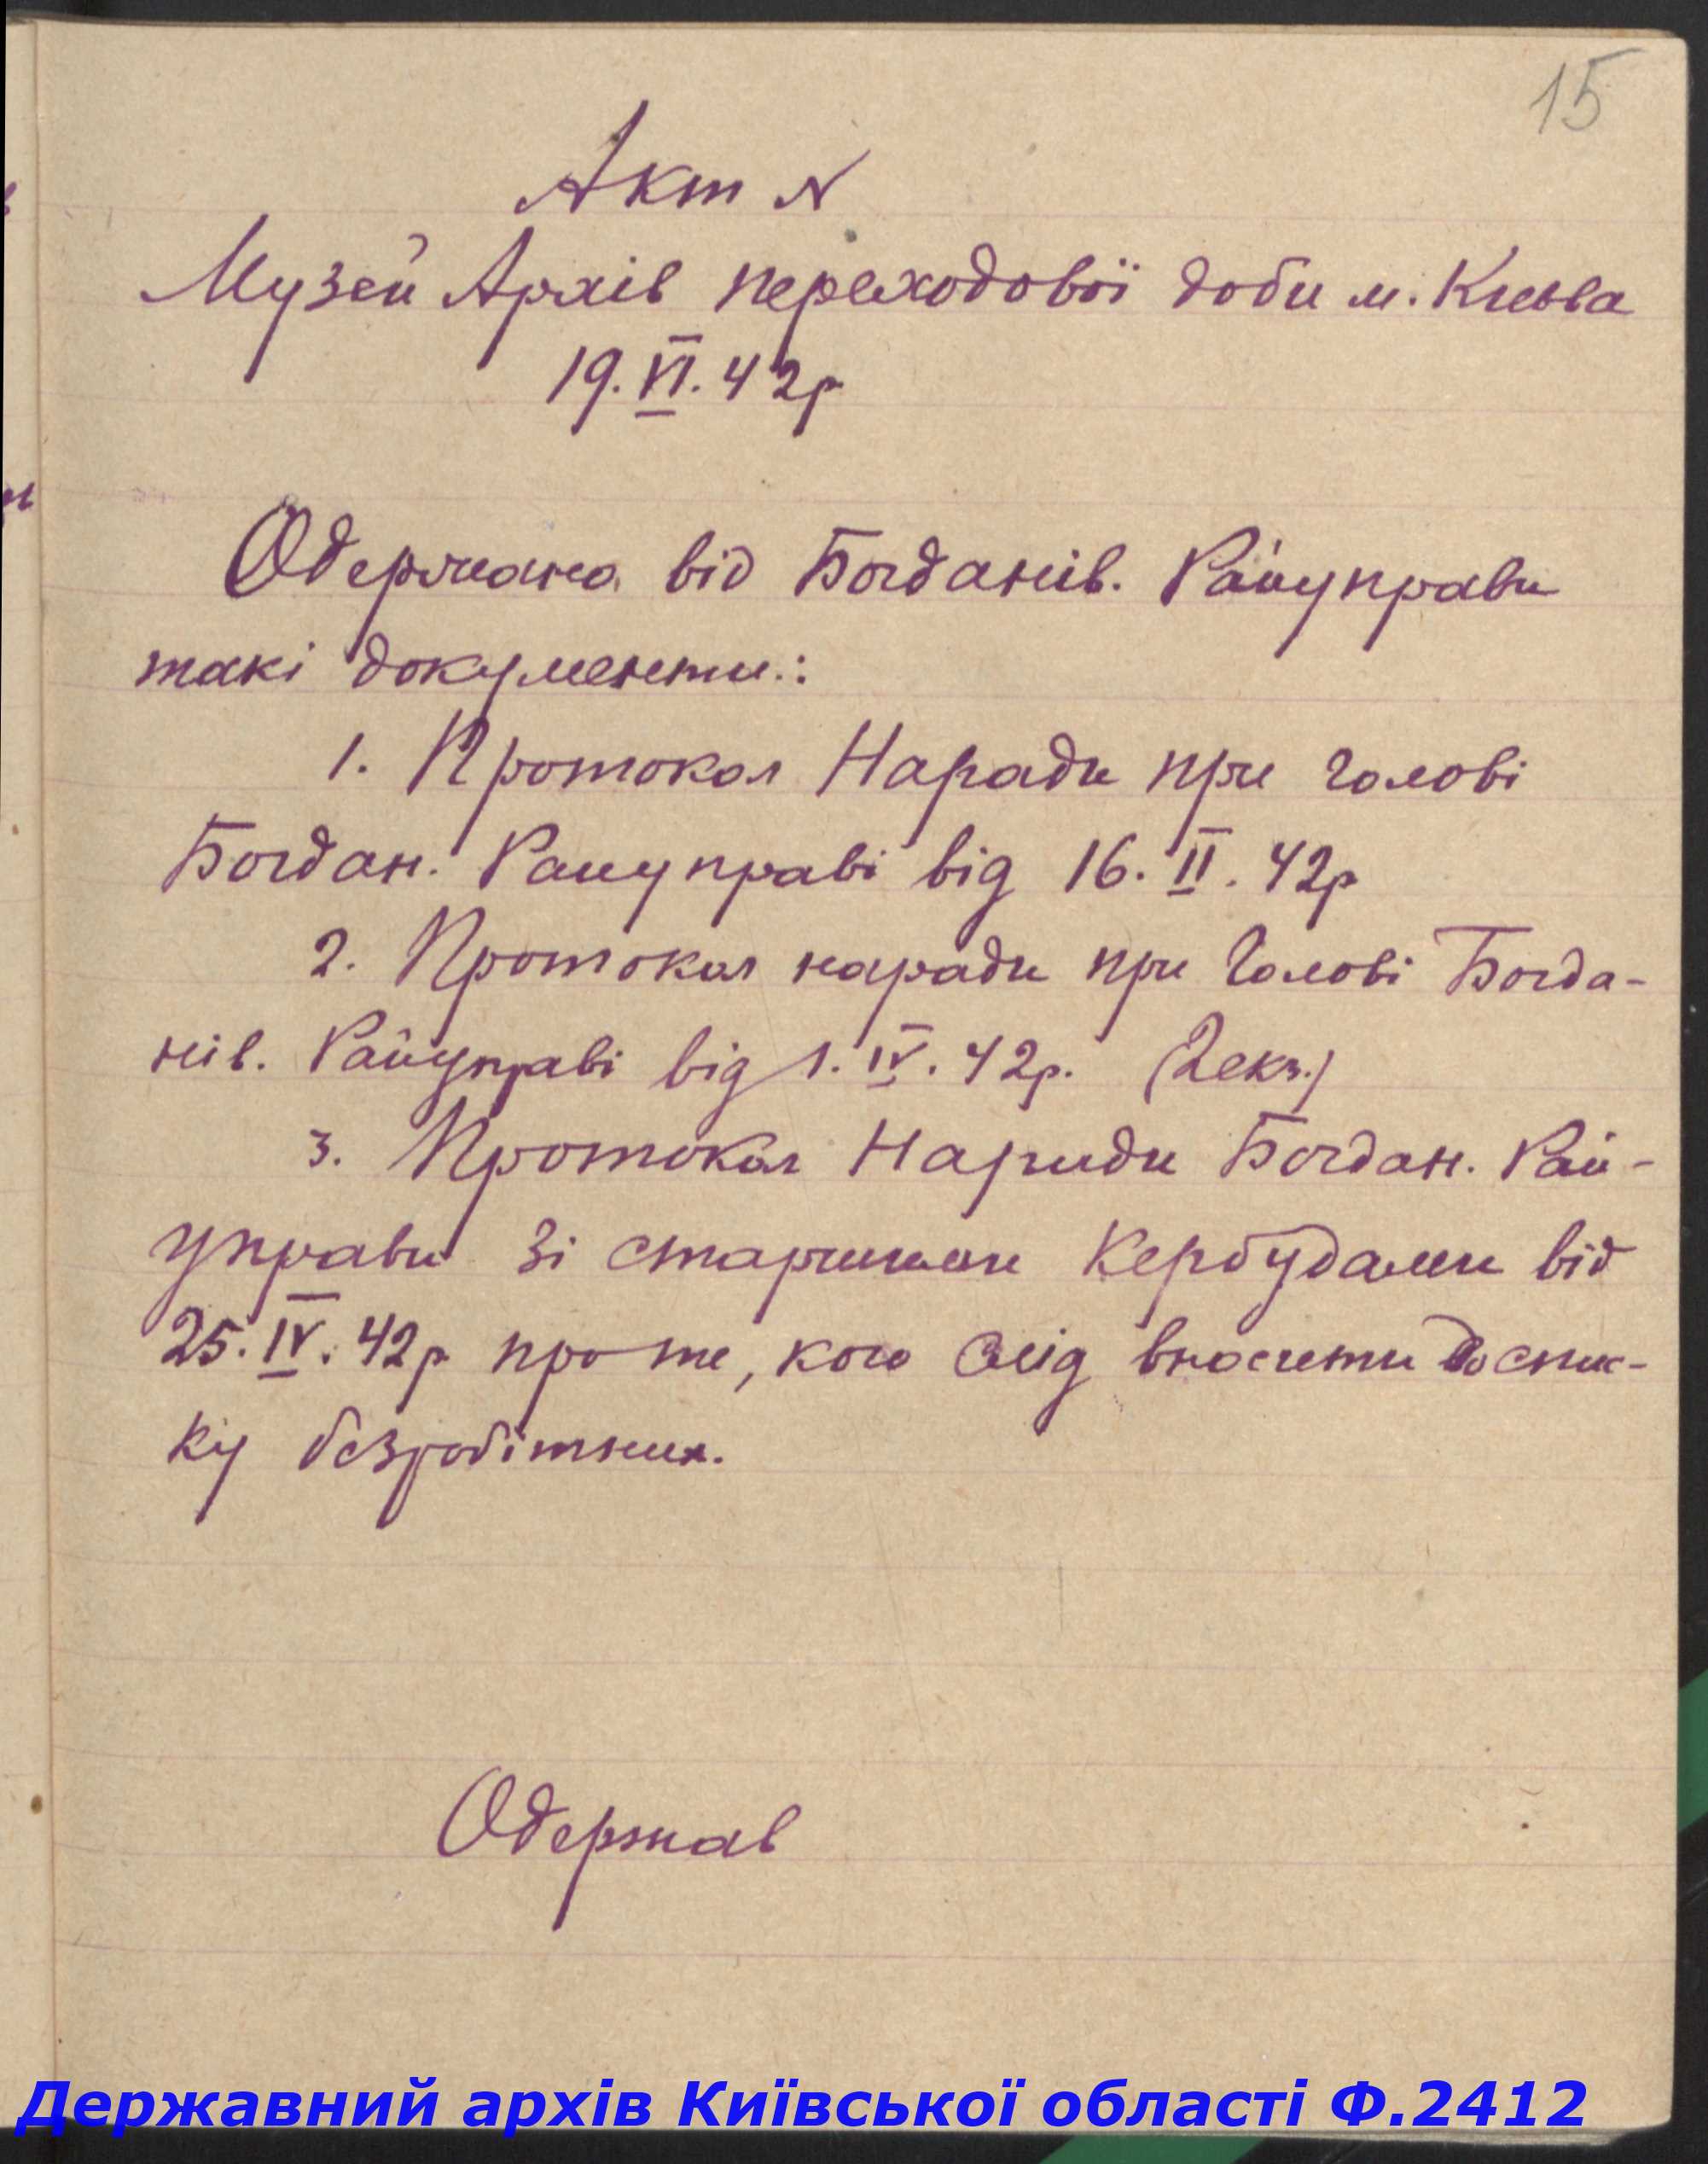 15
Акт №
Музей Архів переходової доби м. Києва
19.VI.42р
Одержано від Богданів. Райуправи
такі документи:
1. Протокол Наради при голові
Богдан. Райуправі від 16.II.42р
2. Протокол наради при Голові Богда-
нів. Райуправі від 1.IV.42р. (2екз.)
3. Протокол Наради Богдан. Рай-
управи зі старшими Кербудами від
25.IV.42р про те, кого слід вносити до спис-
ку безробітних.
Одержав
Державний архів Київської області Ф.2412